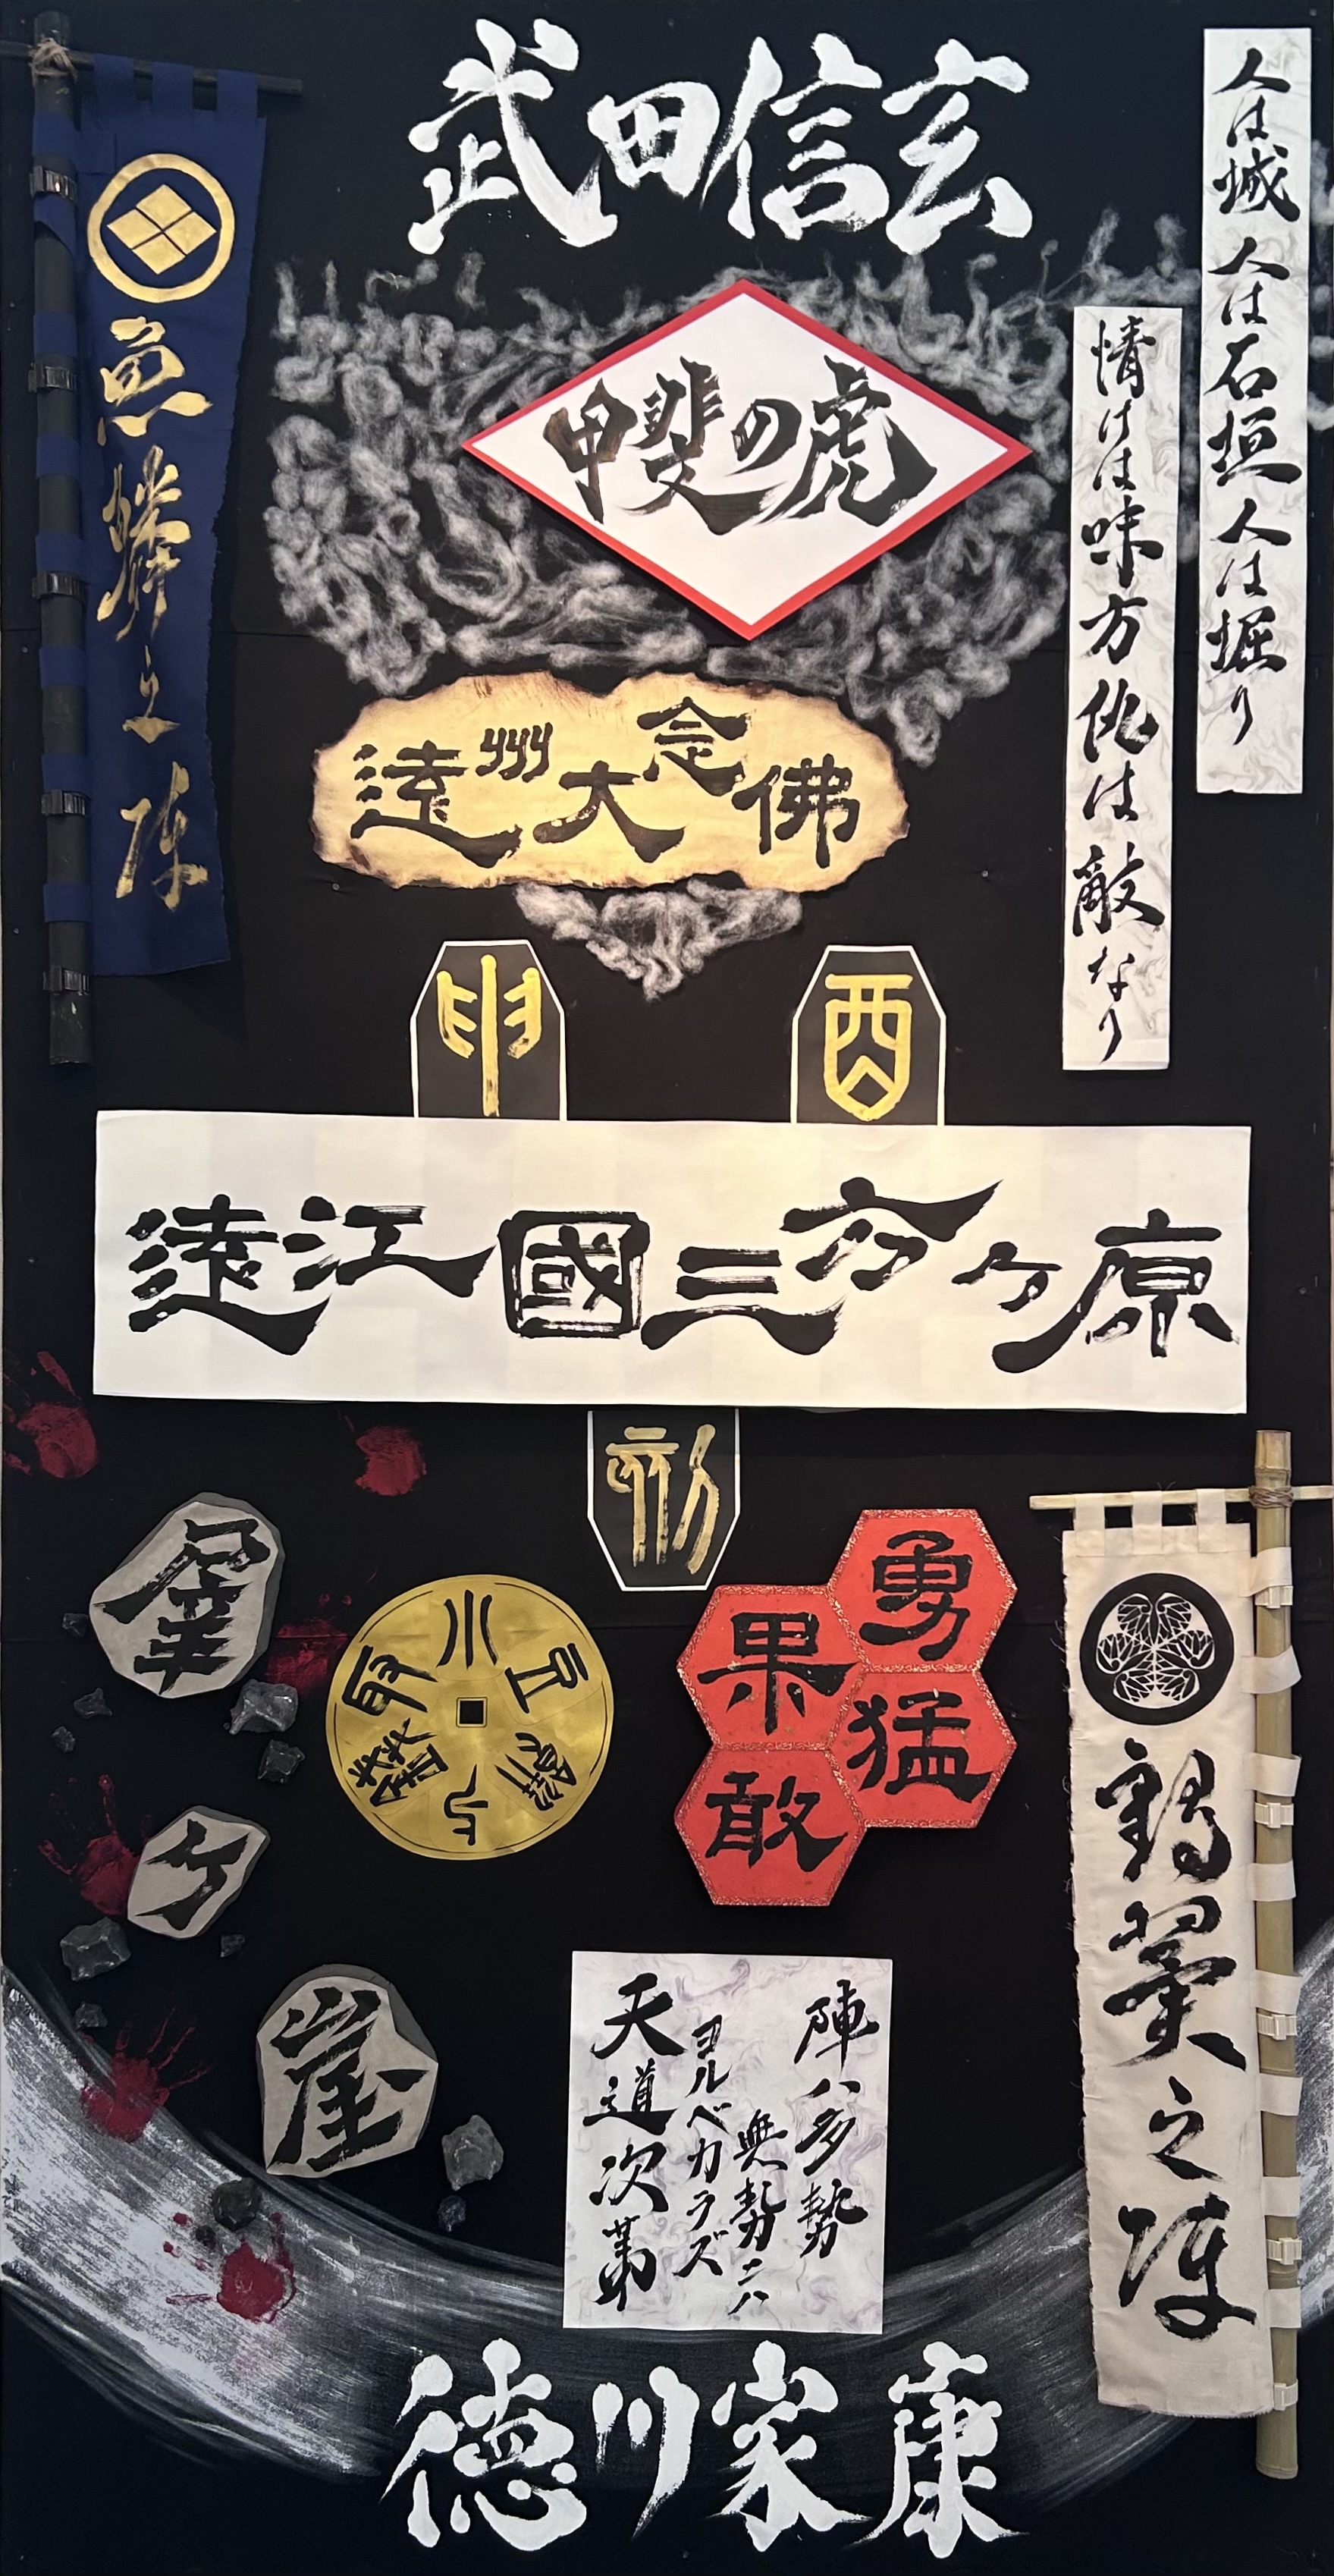 武田信玄
人は城 人は石垣 人は堀り
情けは味方 仇は敵なり
魚鱗之陣
甲斐の虎
遠州大念佛
申
酉
遠江國三方ヶ原
刻
犀
ヶ
崖
小豆餅
錢取
勇猛
果敢
陣ハ多勢
無勢ニハ
ヨルベカラズ
天道次第
鶴翼之陣
徳川家康